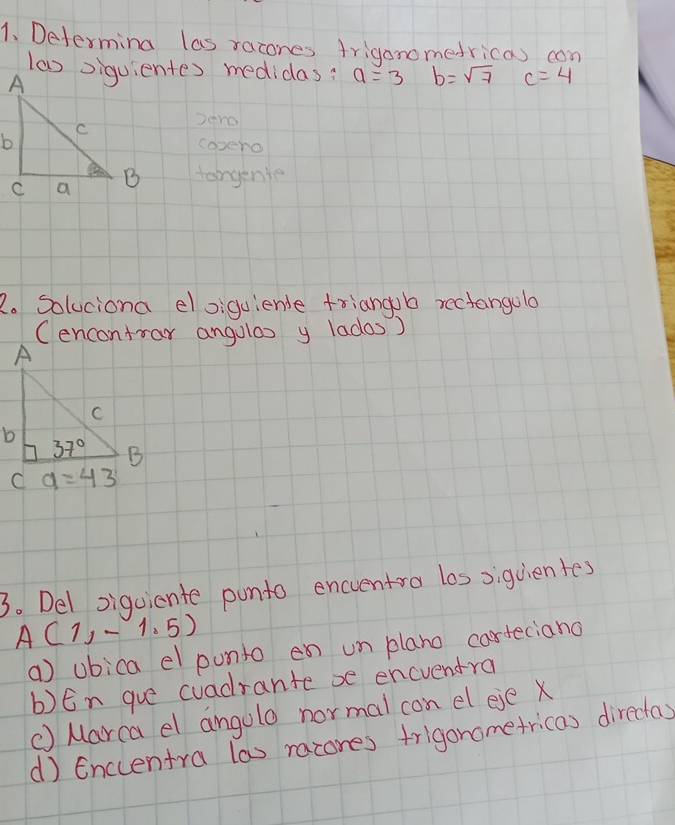 1. Determina las razones trigonometricas con
las siguientes medidas: a=3 b=√7 c=4
A
c
b
seno
coseno
tangente
C a B
2. Soluciona el siguiente triangulo rectangulo
(encontrar angulos y lados)
A
c
b
37° B
C a=43
3. Del siguiente punto encuentra los siguientes
A(1,-1.5)
a) Ubica el punto en un plano carteciano
b) En que cuadrante se encuentra
c) Marca el ángulo normal con el eje X
d) Encuentra las razones trigonometricas directas